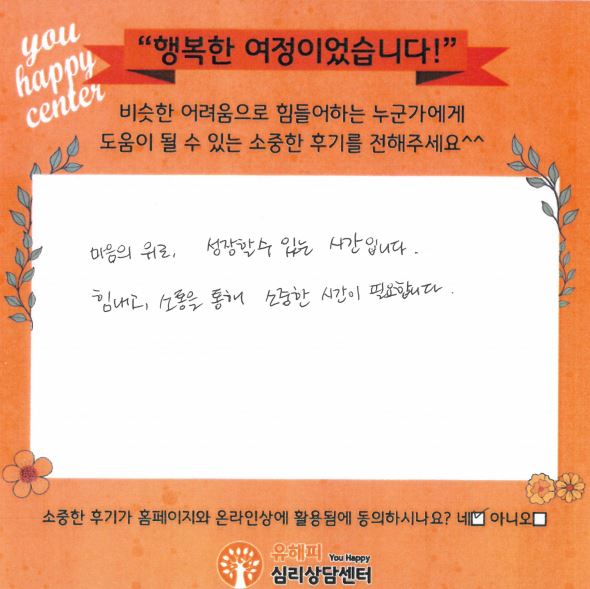 you
happy
center
“행복한 여정이었습니다!”
비슷한 어려움으로 힘들어하는 누군가에게
도움이 될 수 있는 소중한 후기를 전해주세요^^
마음의 위로, 성장할수 있는 시간입니다.
힘내고, 소통을 통해 소중한 시간이 필요합니다.
소중한 후기가 홈페이지와 온라인상에 활용됨에 동의하시나요? 네☑ 아니오☐
유해피 You Happy
심리상담센터